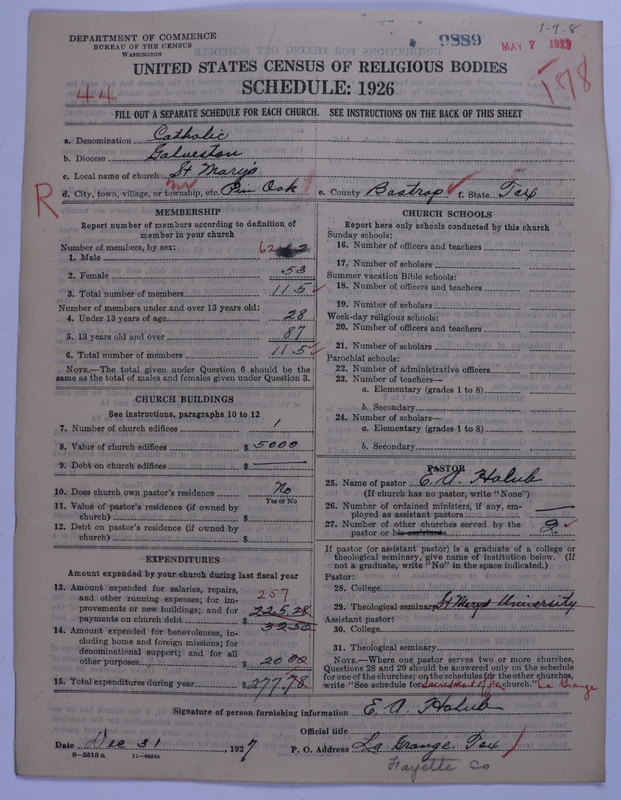 1-7-8
DEPARTMENT OF COMMERCE
BUREAU OF THE CENSUS
WASHINGTON
9889
MAY 7 1927
UNITED STATES CENSUS OF RELIGIOUS BODIES
SCHEDULE: 1926
44
178
FILL OUT A SEPARATE SCHEDULE FOR EACH CHURCH. SEE INSTRUCTIONS ON THE BACK OF THIS SHEET
a. Denomination Catholic
b. Diocese Galveston
c. Local name of church St Mary's
d. City, town, village, or township, etc. Pin Oak e. County Bastrop f. State Tex
R
MEMBERSHIP
Report number of members according to definition of
member in your church
Number of members, by sex:
1. Male 62
2. Female 53
3. Total number of members 115
Number of members under and over 13 years old:
4. Under 13 years of age 28
5. 13 years old and over 87
6. Total number of members 115
NOTE.—The total given under Question 6 should be the
same as the total of males and females given under Question 3.
CHURCH BUILDINGS
See instructions, paragraphs 10 to 12
7. Number of church edifices 1
8. Value of church edifices $ 5000
9. Debt on church edifices $
10. Does church own pastor's residence No
Yes or No
11. Value of pastor's residence (if owned by
church) $
12. Debt on pastor's residence (if owned by
church) $
EXPENDITURES
Amount expended by your church during last fiscal year
13. Amount expended for salaries, repairs,
and other running expenses; for im-
provements or new buildings; and for
payments on church debt $ 257
225.28
32.50
14. Amount expended for benevolences, in-
cluding home and foreign missions; for
denominational support; and for all
other purposes 20.00
15. Total expenditures during year $ 277.78
CHURCH SCHOOLS
Report here only schools conducted by this church
Sunday schools:
16. Number of officers and teachers
17. Number of scholars
Summer vacation Bible schools:
18. Number of officers and teachers
19. Number of scholars
Week-day religious schools:
20. Number of officers and teachers
21. Number of scholars
Parochial schools:
22. Number of administrative officers
23. Number of teachers—
a. Elementary (grades 1 to 8)
b. Secondary
24. Number of scholars—
a. Elementary (grades 1 to 8)
b. Secondary
PASTOR
25. Name of pastor E. A. Holub
(If church has no pastor, write "None")
26. Number of ordained ministers, if any, em-
ployed as assistant pastors
27. Number of other churches served by the
pastor or his assistants 2
If pastor (or assistant pastor) is a graduate of a college or
theological seminary, give name of institution below. (If
not a graduate, write "No" in the space indicated.)
Pastor:
28. College
29. Theological seminary St Marys University
Assistant pastor:
30. College
31. Theological seminary
NOTE.—Where one pastor serves two or more churches,
Questions 28 and 29 should be answered only on the schedule
for one of the churches; on the schedules for the other churches,
write "See schedule for Sacred Heart church." La Grange
Signature of person furnishing information E. A. Holub
Official title
Date Dec 31 1927 P. O. Address La Grange. Tex
8—5518 a
Fayette Co